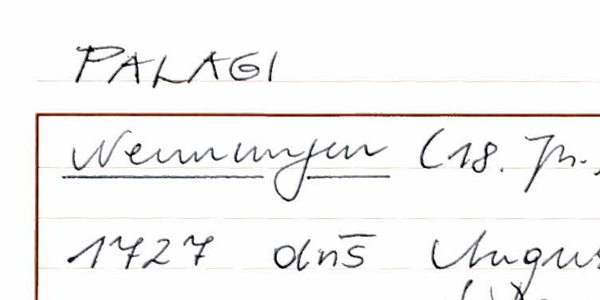 PALAGI
Nennungen (18. Jh.
1727 dns̄ Augus